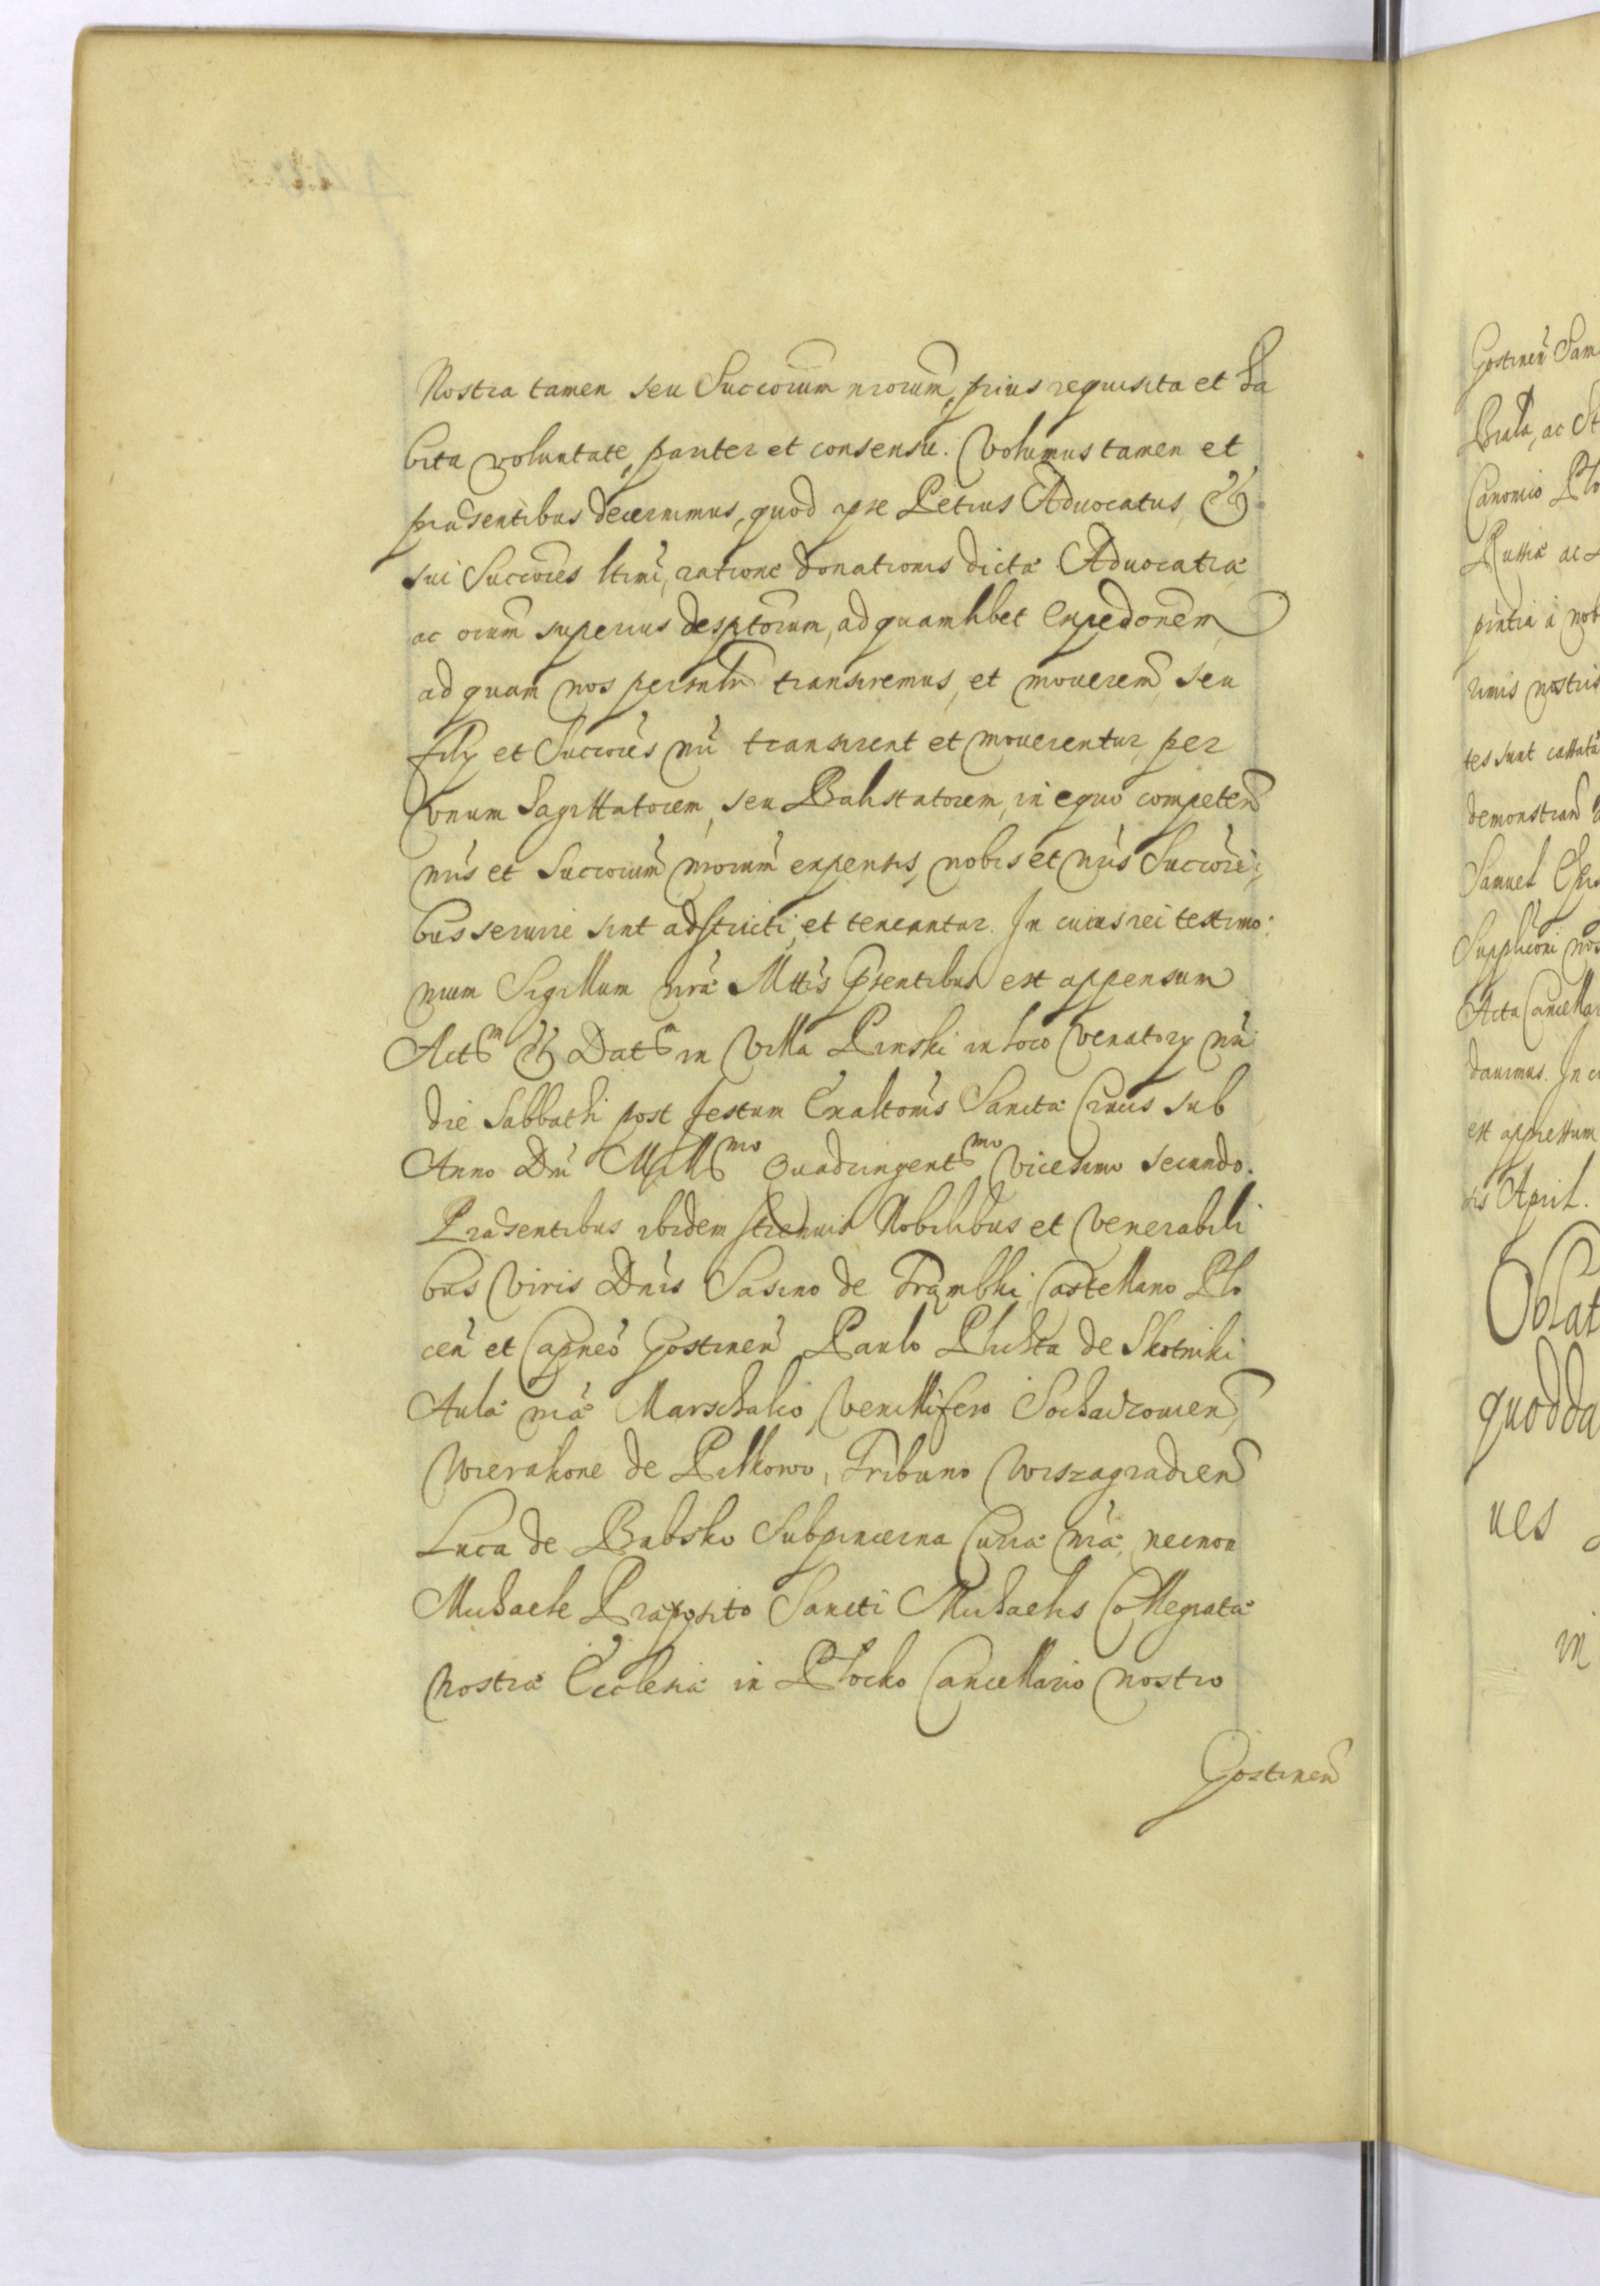 Nostra tamen seu Succorum nrorum, prius requisita et ha
bita voluntate, pariter et consensu. Volumus tamen et
præsentibus decernimus, quod ipse Petrus Advocatus, et
sui Succores ltimi, ratione donationis dictæ Advocatiæ
ac orum superius desptorum, ad quamlibet Expedonem,
ad quam nos personlr transiremus, et moverem, seu
filij et Succores nri transirent et moverentur, per
Vnum Sagittatorem, seu Balistatorem, in equo competen
nris et Succorum nrorum expensis, nobis et nris Succori,
bus servire sint adstricti, et teneantur. In cuius rei testimo:
nium Sigillum nræ Mttis Psentibus est appensum
Actm et Datm in Villa Pinski in loco Venatorij nri
die Sabbathi post festum Exaltonis Sanctæ Crucis sub
Anno Dni Millmo Quadringentmo Vicesimo secundo.
Præsentibus ibidem strenuis Nobilibus et Venerabili
bus Viris Dnis Sasino de Trąmbki Castellano Plo
cen et Capneo Gostinen Paulo Plichta de Skotniki
Aulæ nræ Marschalio, Vexillifero Sochaczovien
Wierakone de Pilkowo, Tribuno Wiszagradien
Luca de Babsko Subpincerna Curiæ nræ, necnon
Michaele Præposito Sancti Michaelis Collegiatæ
nostræ Ecclesiæ in Plocko Cancellario nostro
Gostinen
Gostinen Sam
Biala, ac St
Canonico Plo
Russiæ ac
pintia a nob
rimis nostris
tes sunt cassatæ
demonstran
Samuel
Supplicõni nos
Acta Cancellar
davimus. In c
est appressum
is April.
Oblat
quodda
ues
in